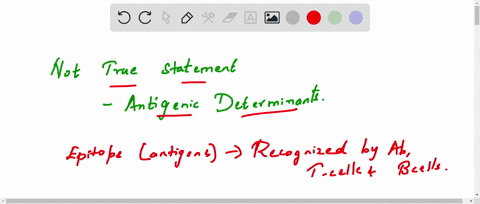 Not True statement
- Antigenic Determinants.
Epitope (antigens) → Recognized by Ab,
T-cells + B cells.